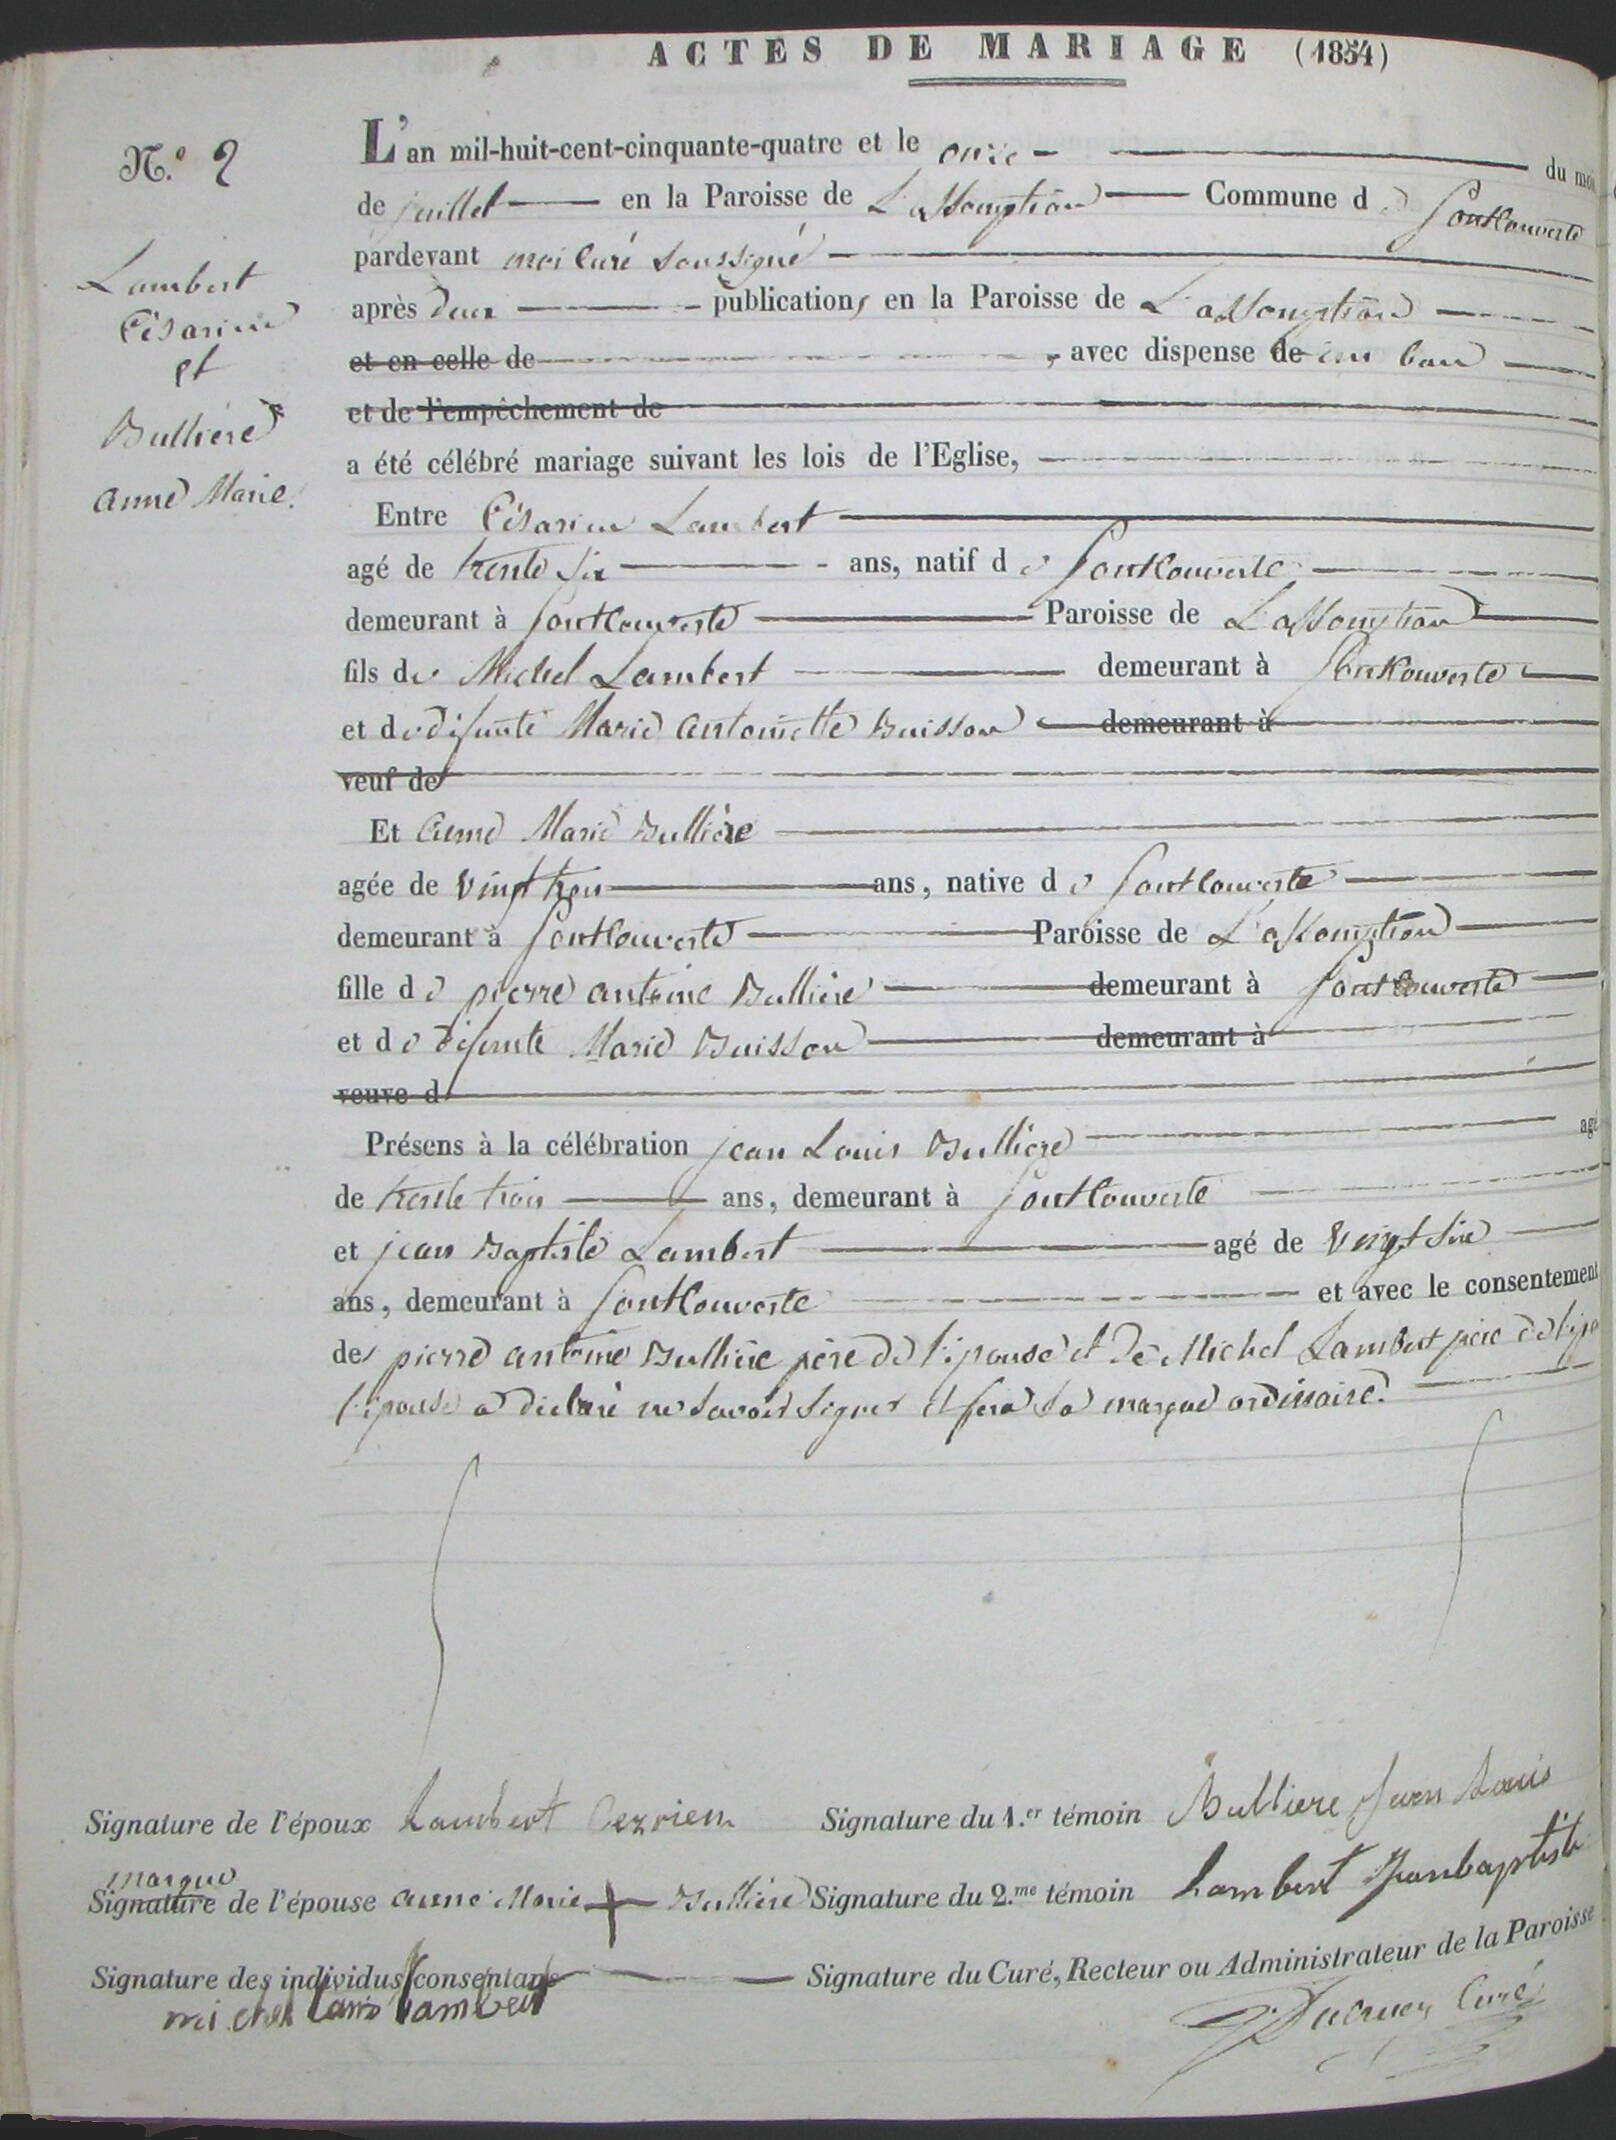 ACTES DE MARIAGE (1854)
N.o 2
Lambert
Césarien
et
Bullière
Anne Marie.
L'an mil-huit-cent-cinquante-quatre et le onze du moi
de juillet en la Paroisse de L'assomption Commune de Fontcouverte
pardevant moi curé soussigné
après deux publications en la Paroisse de L'assomption
et en celle de , avec dispense de un ban
et de l'empêchement de
a été célébré mariage suivant les lois de l'Eglise,
Entre Césarien Lambert
agé de trente six ans, natif de Fontcouverte
demeurant à Fontcouverte Paroisse de L'assomption
fils de Michel Lambert demeurant à Fontcouverte
et de défunte Marie antoinette Buisson demeurant à
veuf de
Et Anne Marie Bullière
agée de vingt trois ans, native de Fontcouverte
demeurant à Fontcouverte Paroisse de L'assomption
fille de pierre antoine Bullière demeurant à Fontcouverte
et de défunte Marie Buisson demeurant à
veuve d
Présens à la célébration jean Louis Bullière agé
de trente trois ans, demeurant à Fontcouverte
et jean Baptiste Lambert agé de vingt six
ans, demeurant à Fontcouverte et avec le consentement
des pierre antoine Bullière père de l'épouse et de Michel Lambert père de l'épo
l'épouse a déclaré ne savoir signer et fera sa marque ordinaire.
Signature de l'époux Lambert Cezrien
Signature du 1.er témoin Bulliere Jean Louis
marque
Signature de l'épouse anne Marie + Bullière
Signature du 2.me témoin Lambert Jeanbaptiste
Signature des individus consentans
michel Lambert
Signature du Curé, Recteur ou Administrateur de la Paroisse
Curé